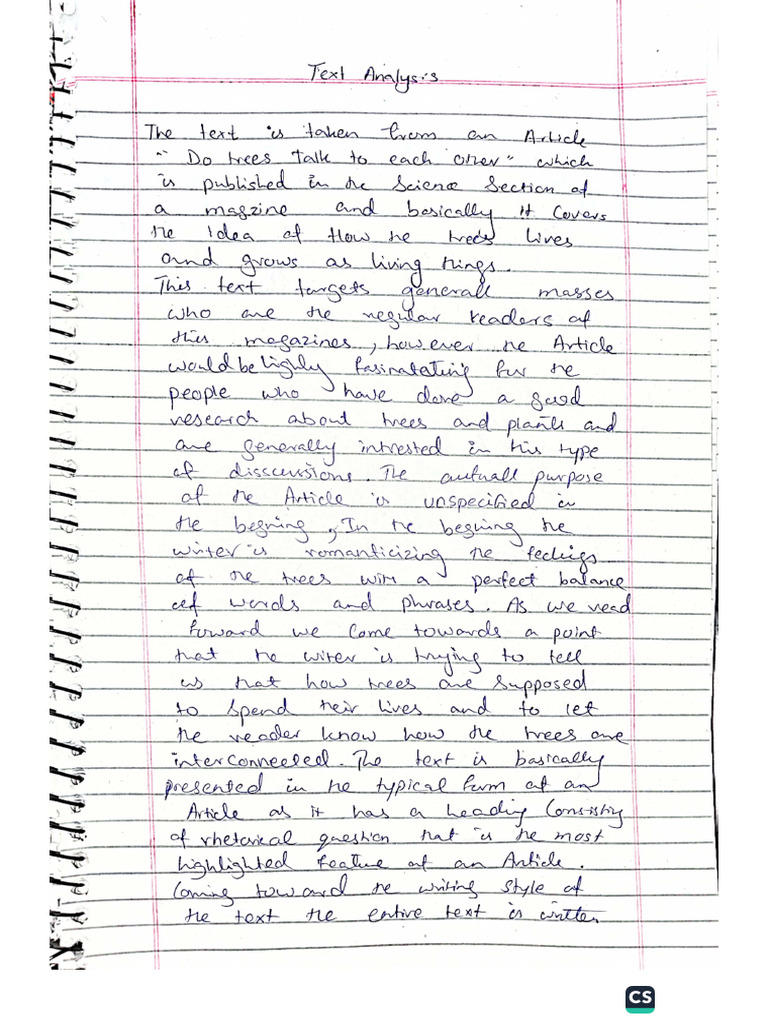 Text Analysis
The text is taken from an Article
" Do trees Talk to each other" which
is published in the Science Section of
a magzine and basically it Covers
the Idea of How the trees lives
and grows as living things.
This text targets generall masses
who are the regular readers of
this magazines, however the Article
would be highly fasinatating for the
people who have done a good
research about trees and plants and
are generally intrested in this type
of disscussions. The actuall purpose
of the Article is unspecified in
the begning, In the begning the
writer is romanticizing the feelings
of the trees with a perfect balance
of words and phrases. As we read
forward we Come towards a point
that the writer is trying to tell
us that how trees are supposed
to spend their lives and to let
the reader know how the trees are
interconnected. The text is basically
presented in the typical form of an
Article as it has a heading Consisting
of rhetorical question that is the most
highlighted feature of an Article.
Coming toward the writing style of
the text the entire text is written
CS